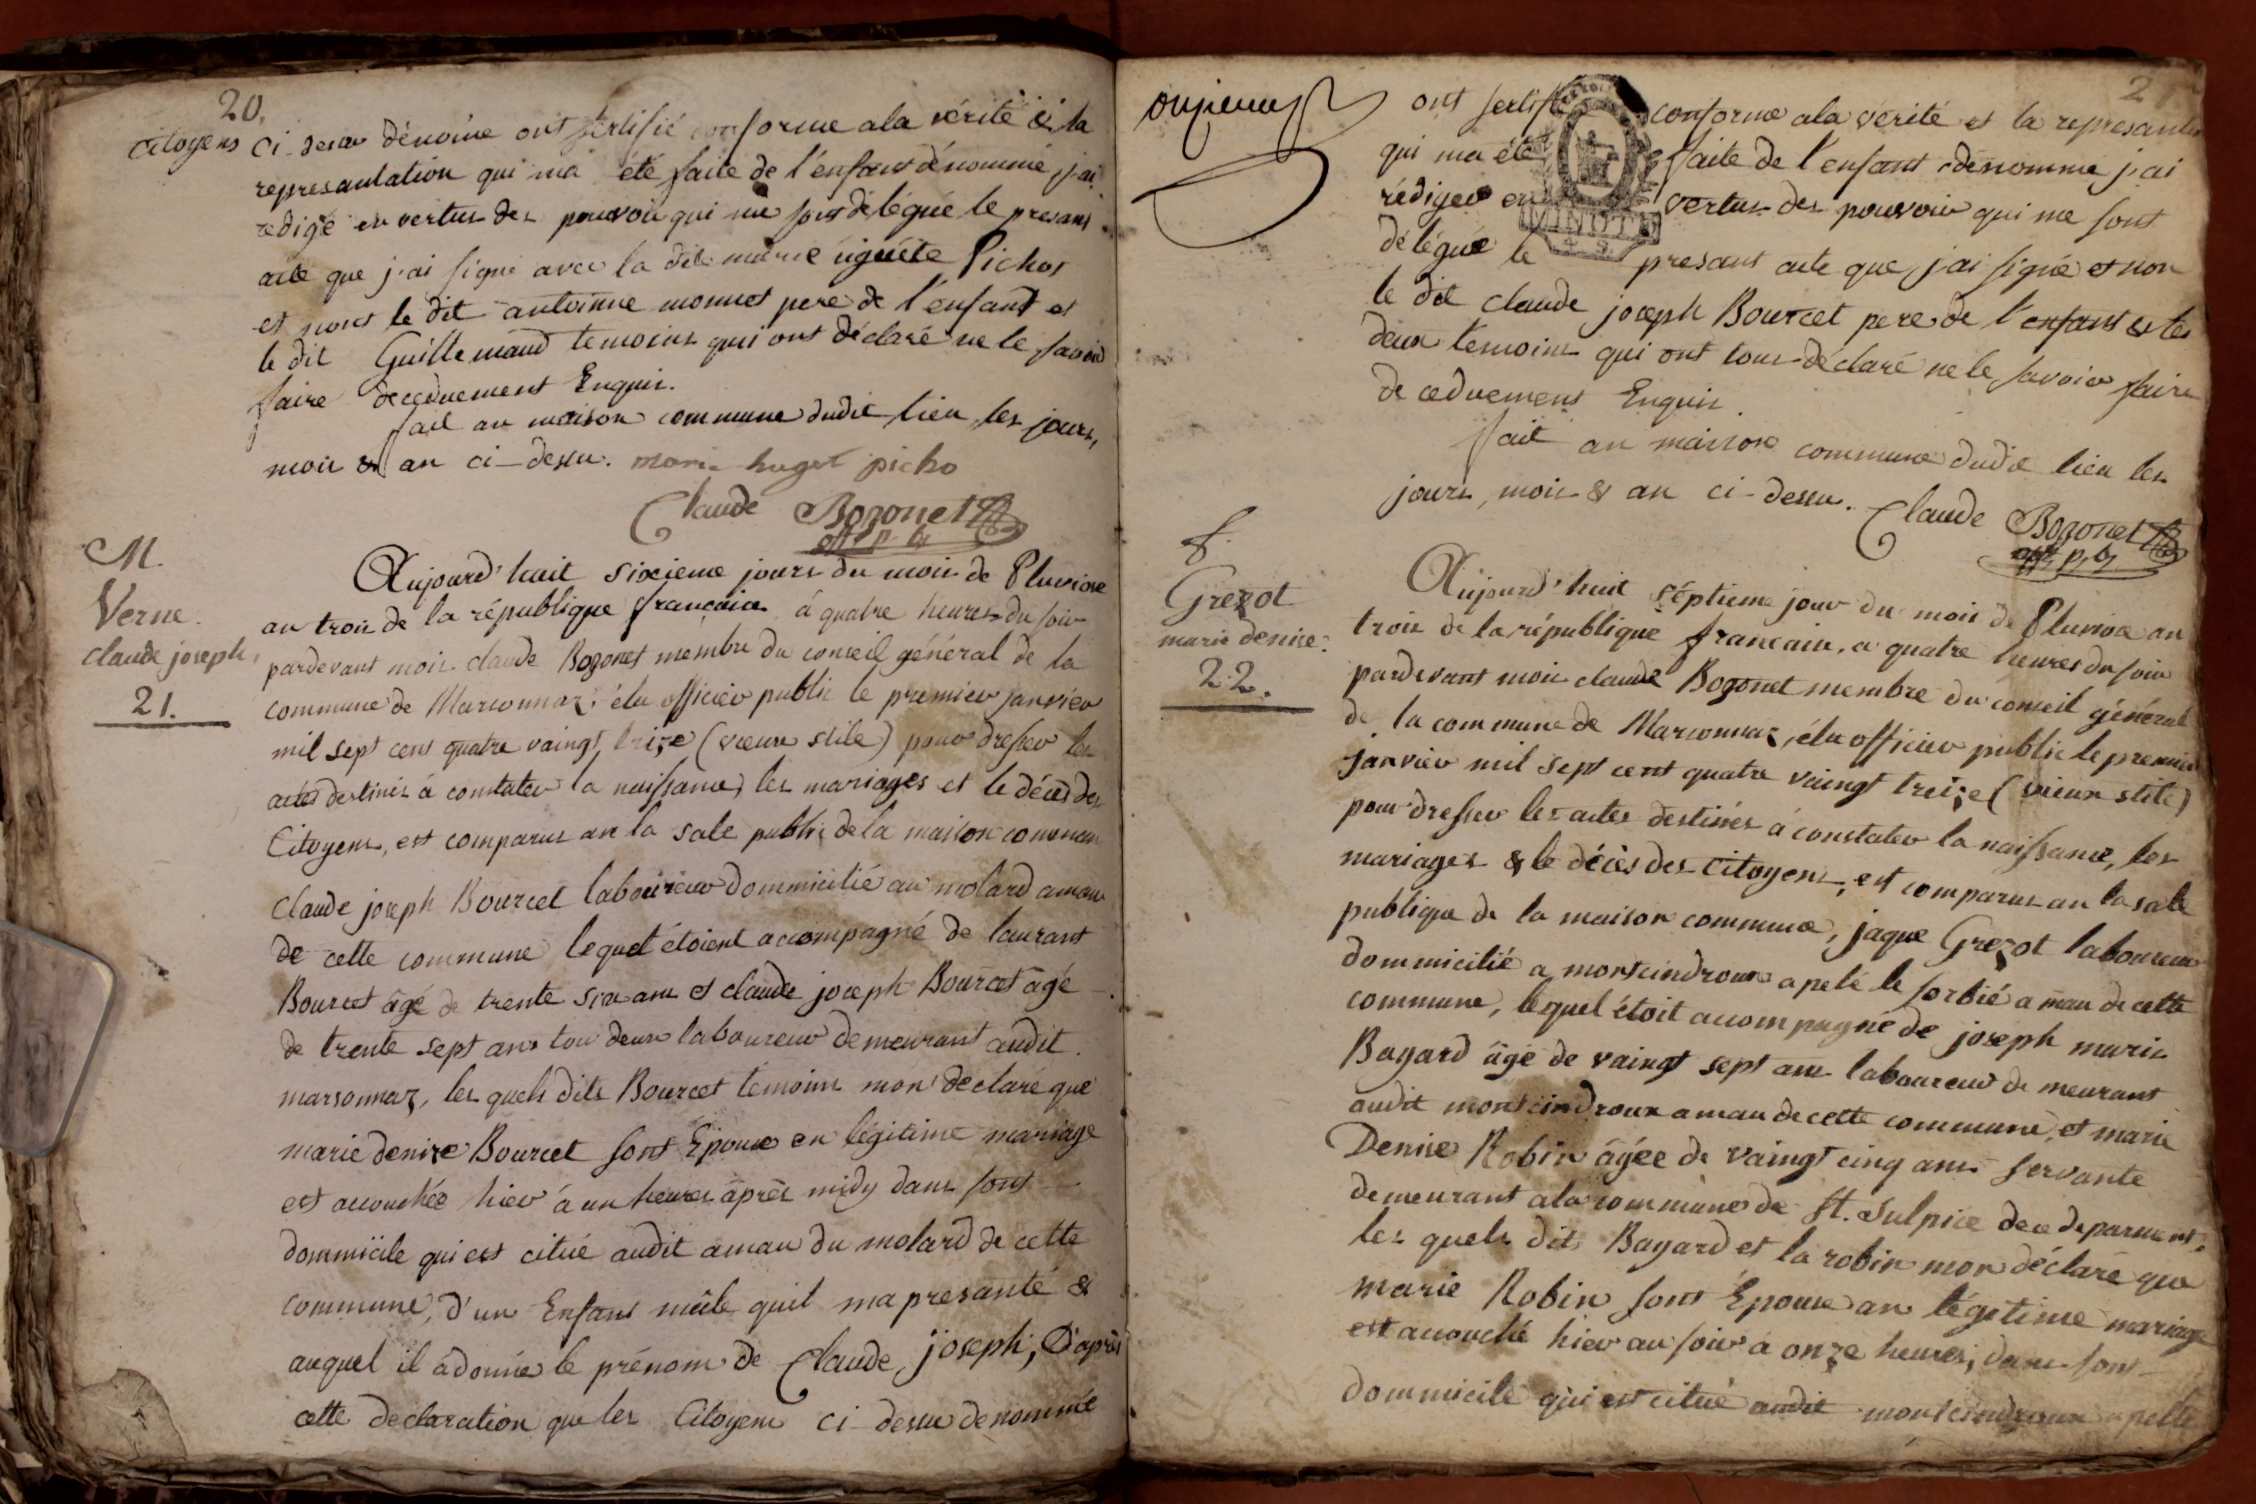 20.
citoyens ci-desu dénomé ont sertifié conforme a la vérité & la
represantation qui ma été faite de l'enfant dénommé j'ai
redigé en vertus des pouvoir qui me sont délégué le presant
acte que j'ai signé avec la dite marie uguéte Pichot
et nont le dit antoinne monnet pere de l'enfant et
le dit Guillemaud temoins qui ont déclaré ne le savoir
faire deceduement Enquis.
fait an maison commune dudit lieu les jours,
mois & an ci-desu. marie huget picho
Claude Bozonet
off. p. b.
M.
Verne.
claude joseph.
21.
Aujourd'huit sixieme jours du mois de Pluviose
an trois de la république francaise à quatre heures du soir
pardevant mois claude Bozonet membre du conseil général de la
commune de Marsonnaz, élu officier public le premier janvier
mil sept cent quatre vaingt treize (vieux stile) pour dresser les
actes destinés à constater la naissance, les mariages et le décès des
Citoyens, est comparus an la sale public de la maison commune
Claude joseph Bourcet laboureur dommicilié au molard amau
de cette commune lequel étoient accompagné de laurant
Bourcet âgé de trente six ans et claude joseph Bourcet âgé
de trente sept ans tou deux laboureur demeurant audit
marsonnaz, les quels dits Bourcet témoins mon déclaré que
marie denize Bourcet sont Epouse en légitime mariage
est accouchée hier à un heures après midy dans sont
dommicile qui est citué audit amau du molard de cette
commune, d'un Enfant mâle quil ma presanté &
auquel il a donné le prénom de Claude, joseph, D'après
cette declaration que les Citoyens ci-desu denommé
ont sertifié conforme a la vérité et la represantation
qui ma été faite de l'enfant denommé j'ai
rédiger en vertus des pouvoir qui me sont
délégué le presant acte que j'ai signé et non
le dit claude joseph Bourcet pere de l'enfant & les
deux temoins qui ont tous déclaré ne le savoir faire
de ceduement Enquis.
MINUTE
fait an maison commune dudit lieu les
jours, mois & an ci-desu. Claude Bozonet
off. p. b.
f.
Grezot
marie denise.
22.
Aujourd'huit séptieme jour du mois de Pluviose an
trois de la république francaise, a quatre heures du soir
pardevant mois claude Bozonet membre du conseil général
de la commune de Marsonnaz, élu officier public le premier
janvier mil sept cent quatre vaingt treize (vieux stile)
pour dresser les actes destinés à constater la naissance, les
mariages & le décès des Citoyens, est comparus an la sale
publique de la maison commune, jaque Grezot laboureur
dommicilié a montcindroux apelé le sorbié amau de cette
commune, lequel étoit accompagné de joseph marie
Bayard âgé de vaingt sept ans laboureur de meurant
audit montcindroux amau de cette commune, et marie
Denise Robin âgée de vaingt cinq ans servante
demeurant a la commune de St. Sulpice dece deparment.
les quels dit Bayard et la robin mon déclaré que
marie Robin sont Epouse an légitime mariage
est accouché hier au soir à onze heures, dans sont
dommicile qui est citué audit montcindroux apellé